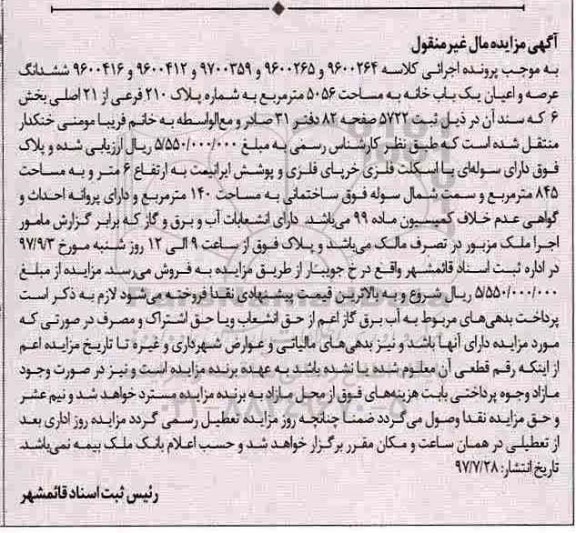 آگهی مزایده مال غیر منقول
به موجب پرونده اجرائی کلاسه ۹۶۰۰۲۶۴ و ۹۶۰۰۲۶۵ و ۹۷۰۰۳۵۹ و ۹۶۰۰۴۱۲ و ۹۶۰۰۴۱۶ ششدانگ
عرصه و اعیان یک باب خانه به مساحت ۵۰۵۶ مترمربع به شماره پلاک ۲۱۰ فرعی از ۲۱ اصلی بخش
۶ که سند آن در ذیل ثبت ۵۷۲۲ صفحه ۸۲ دفتر ۳۱ صادر و مع‌الواسطه به خانم فریبا مومنی خنکدار
منتقل شده است که طبق نظر کارشناس رسمی به مبلغ ۵/۵۵۰/۰۰۰/۰۰۰ ریال ارزیابی شده و پلاک
فوق دارای سوله‌ای با اسکلت فلزی خرپای فلزی و پوشش ایرانیت به ارتفاع ۶ متر و به مساحت
۸۴۵ مترمربع و سمت شمال سوله فوق ساختمانی به مساحت ۱۴۰ مترمربع و دارای پروانه احداث و
گواهی عدم خلاف کمیسیون ماده ۹۹ می‌باشد. دارای انشعابات آب و برق و گاز که برابر گزارش مامور
اجرا ملک مزبور در تصرف مالک می‌باشد و پلاک فوق از ساعت ۹ الی ۱۲ روز شنبه مورخ ۹۷/۹/۳
در اداره ثبت اسناد قائمشهر واقع در خ جویبار از طریق مزایده به فروش می‌رسد. مزایده از مبلغ
۵/۵۵۰/۰۰۰/۰۰۰ ریال شروع و به بالاترین قیمت پیشنهادی نقدا فروخته می‌شود لازم به ذکر است
پرداخت بدهی‌های مربوط به آب برق گاز اعم از حق انشعاب ویا حق اشتراک و مصرف در صورتی که
مورد مزایده دارای آنها باشد و نیز بدهی‌های مالیاتی و عوارض شهرداری و غیره تا تاریخ مزایده اعم
از اینکه رقم قطعی آن معلوم شده یا نشده باشد به عهده برنده مزایده است و نیز در صورت وجود
مازاد وجوه پرداختی بابت هزینه‌های فوق از محل مازاد به برنده مزایده مسترد خواهد شد و نیم عشر
و حق مزایده نقدا وصول می‌گردد ضمنا چنانچه روز مزایده تعطیل رسمی گردد مزایده روز اداری بعد
از تعطیلی در همان ساعت و مکان مقرر برگزار خواهد شد و حسب اعلام بانک ملک بیمه نمی‌باشد.
تاریخ انتشار: ۹۷/۷/۲۸
رئیس ثبت اسناد قائمشهر